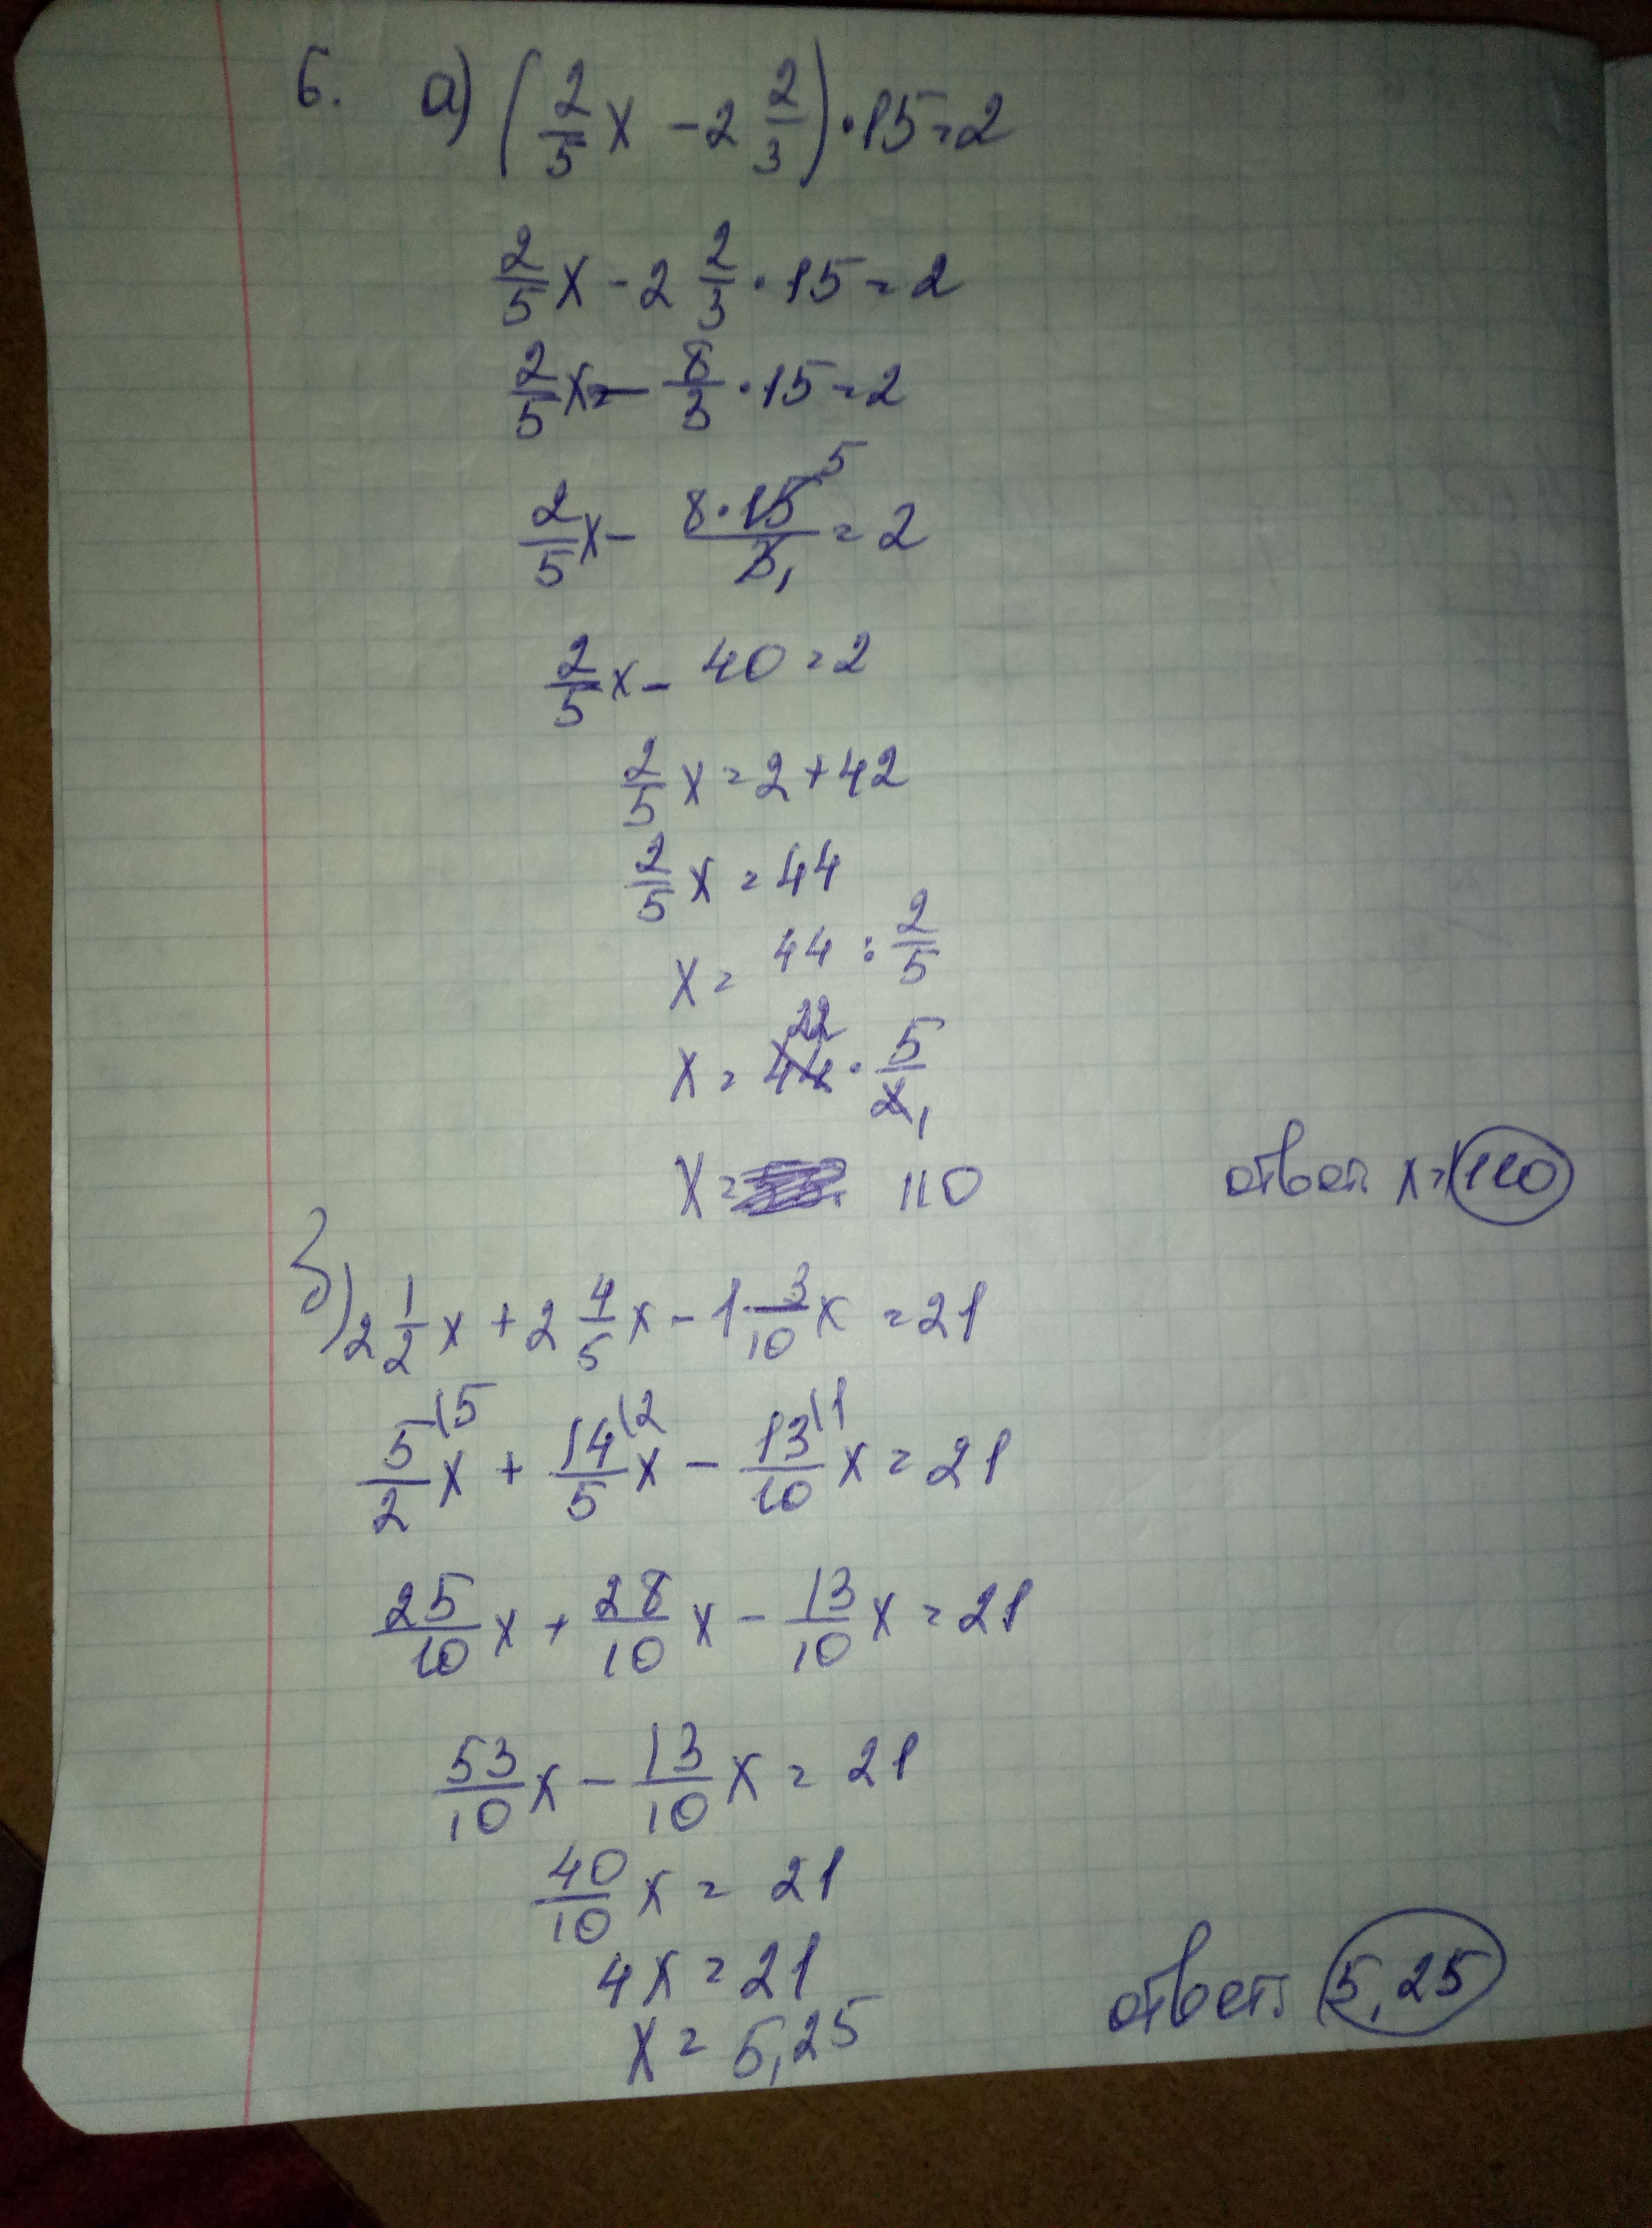 6. а) (2/5 x - 2 2/3) · 15 = 2
2/5 x - 2 2/3 · 15 = 2
2/5 x - 8/3 · 15 = 2
2/5 x - 8 · 15 5 / 3 1 = 2
2/5 x - 40 = 2
2/5 x = 2 + 42
2/5 x = 44
x = 44 : 2/5
x = 44 22 · 5/2 1
x = 110 ответ: x = 110
б) 2 1/2 x + 2 4/5 x - 1 3/10 x = 21
5/2 \5 x + 14/5 \2 x - 13/10 \1 x = 21
25/10 x + 28/10 x - 13/10 x = 21
53/10 x - 13/10 x = 21
40/10 x = 21
4x = 21
x = 5,25 ответ: 5,25